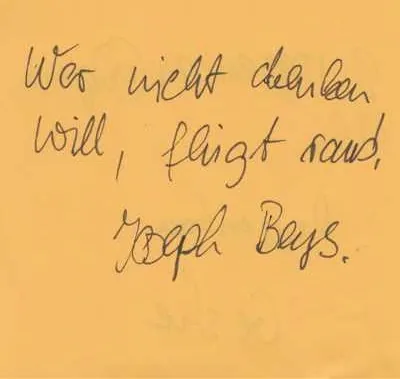 Wer nicht denken
will, fliegt raus,
Joseph Beuys.